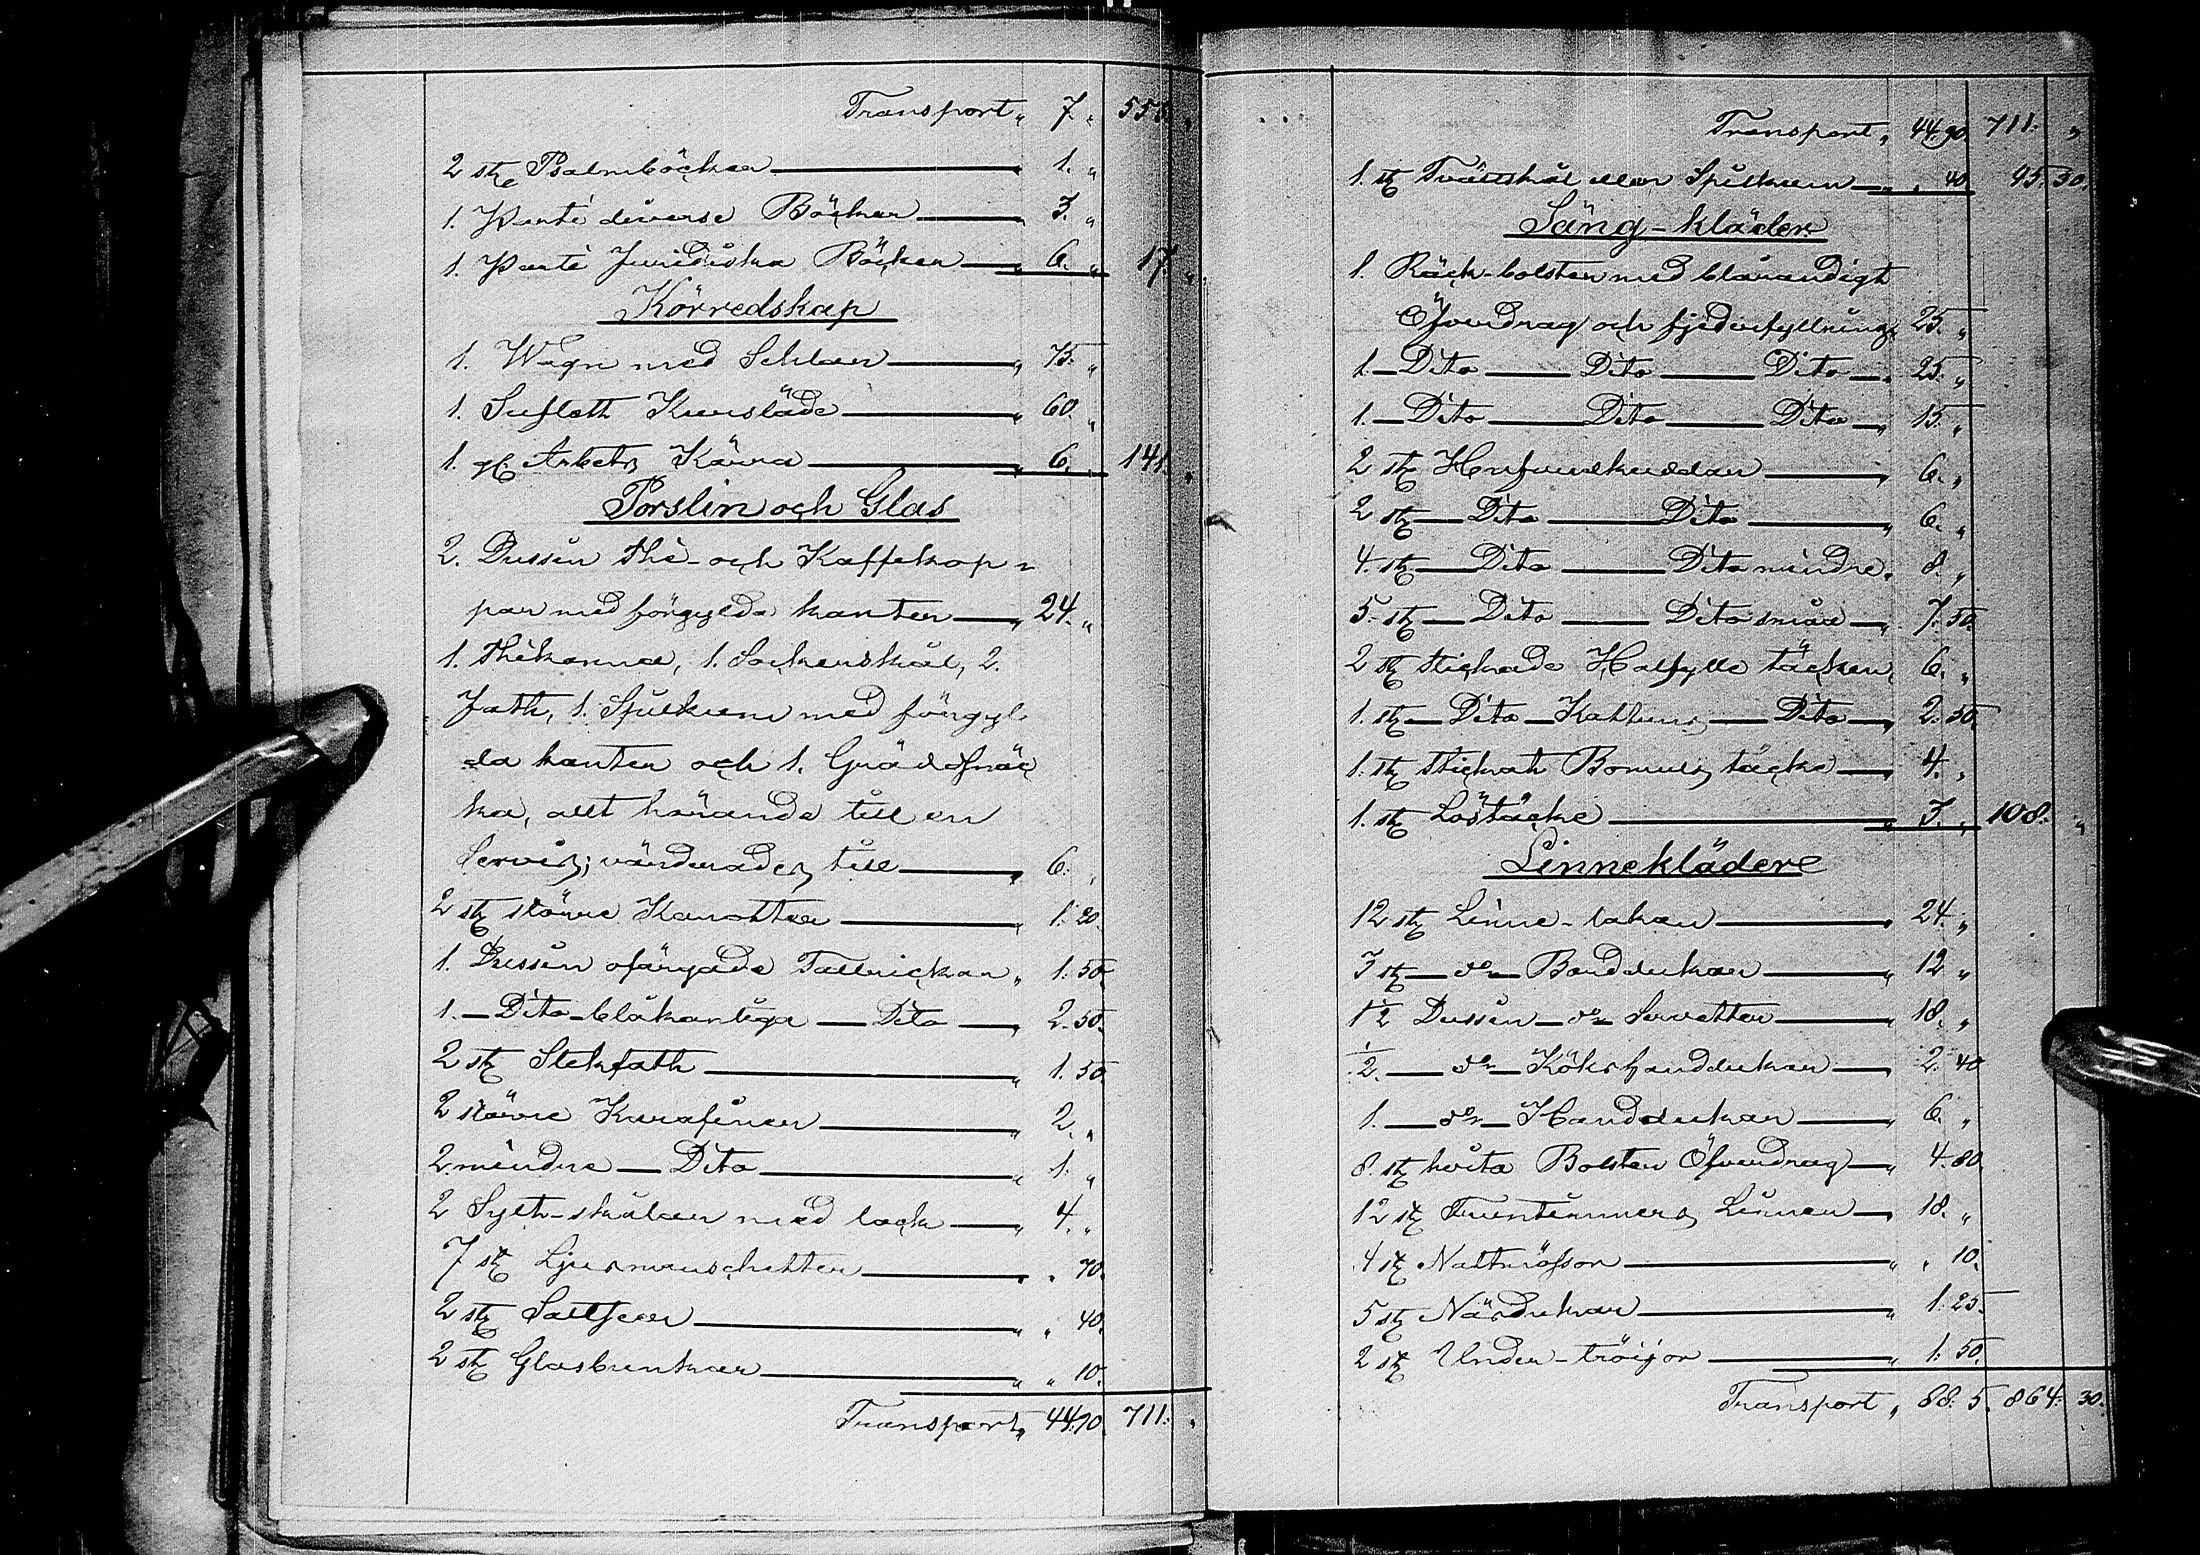 Transport „ 7. „ 553. „
2 st. Psalmböcker — „ 1. „
1. Parti diverse Böcker — „ 3. „
1. Parti Juridiska Böcker — „ 6. „ 17. „
Körredskap
1. Wagn med Schlar — „ 75. „
1. Sufflett Kursläde — „ 60. „
1. gl. Arbets Kärra — „ 6. „ 141. „
Porslin och Glas
2. Dussin thé- och Kaffekop-
par med förgylda kanter — „ 24. „
1. thékanna, 1. Sockerskål, 2.
Fath, 1. Spilkum med förgyl-
da kanter och 1. Gräddsnäc
ka, allt hörande till en
Servis; värderades till — „ 6. „
2 st. större Karotter — „ 1. 20.
1. Dussin ofärgade Tallrickar „ 1. 50.
1. — Dito blåkantiga — Dito — „ 2. 50.
2 st. Stekfath — „ 1. 50.
2 större Karafiner — „ 2. „
2. mindre — Dito — „ 1. „
2 Sylt-skålar med lock — „ 4. „
7 st. Ljusmanschetter — „ „ 70.
2 st. Saltkar — „ „ 40.
2 st. Glasburkar — „ „ 10.
Transport „ 44. 90. 711. „
Transport „ 44. 90. 711. „
1. st. Tvättskål eller Spilkum — „ „ 40 45. 30.
Säng-kläder
1. Räck-bolster med blårandigt
Öfverdrag och fjederfyllning „ 25. „
1. — Dito — Dito — Dito — „ 25. „
1. — Dito — Dito — Dito — „ 15. „
2 st. Hufvudkuddar — „ 6. „
2 st. — Dito — Dito — „ 6. „
4. st. — Dito — Dito mindre „ 8. „
5. st. — Dito — Dito små — „ 7. 50.
2 st. stickade Halfylle täcken „ 6. „
1. st. — Dito — Kattuns — Dito — „ 2. 50.
1. st. stickat Bomulls täcke — „ 4. „
1. st. Löstäcke — „ 3. „ 108. „
Linnekläder
12 st. Linne-lakan — „ 24. „
3 st. — do — Borddukar — „ 12 „
1 1/2 Dussin — do — Servetter — „ 18. „
1/2. — do — Kökshanddukar — „ 2. 40
1. — do — Handdukar — „ 6. „
8. st. hvita Bolster Öfverdrag — „ 4. 80.
12 st. Fruntimmers Linnen — „ 18. „
4 st. Nattmössor — „ „ 10.
5 st. Näsdukar — „ 1. 25.
2 st. Under-tröijor — „ 1. 50.
Transport „ 88. 5. 864. 30.